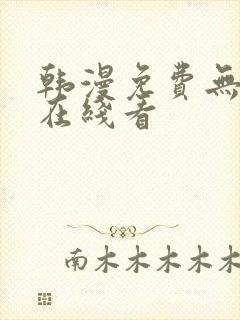 韩漫免费無
在綫看
南木木木木木